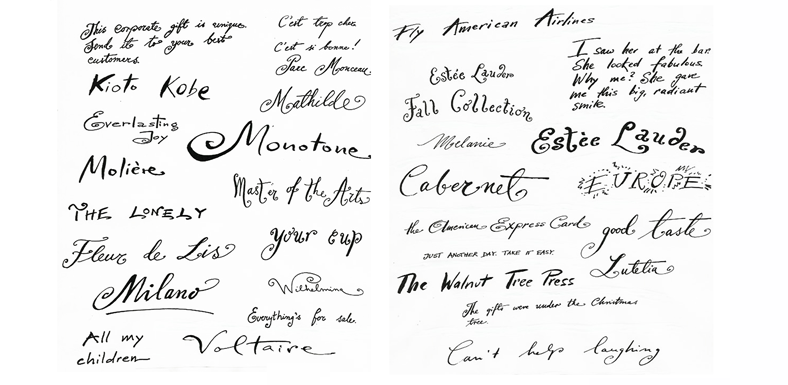 This corporate gift is unique.
Send it to your best
customers.
C'est trop cher.
C'est si bonne!
Parc Monceau
Kioto Kobe
Mathilde
Everlasting
Joy
Monotone
Molière
Master of the Arts
THE LONELY
your cup
Fleur de Lis
Milano
Wilhelmina
Everything's for sale.
All my
children
Voltaire
Fly American Airlines
I saw her at the bar.
She looked fabulous.
Why me? She gave
me this big, radiant
smile.
Estée Lauder
Fall Collection
Melanie
Estée Lauder
Cabernet
EUROPE
NY
the American Express Card
good taste
JUST ANOTHER DAY. TAKE IT EASY.
Lutetia
The Walnut Tree Press
The gifts were under the Christmas
tree.
Can't help laughing